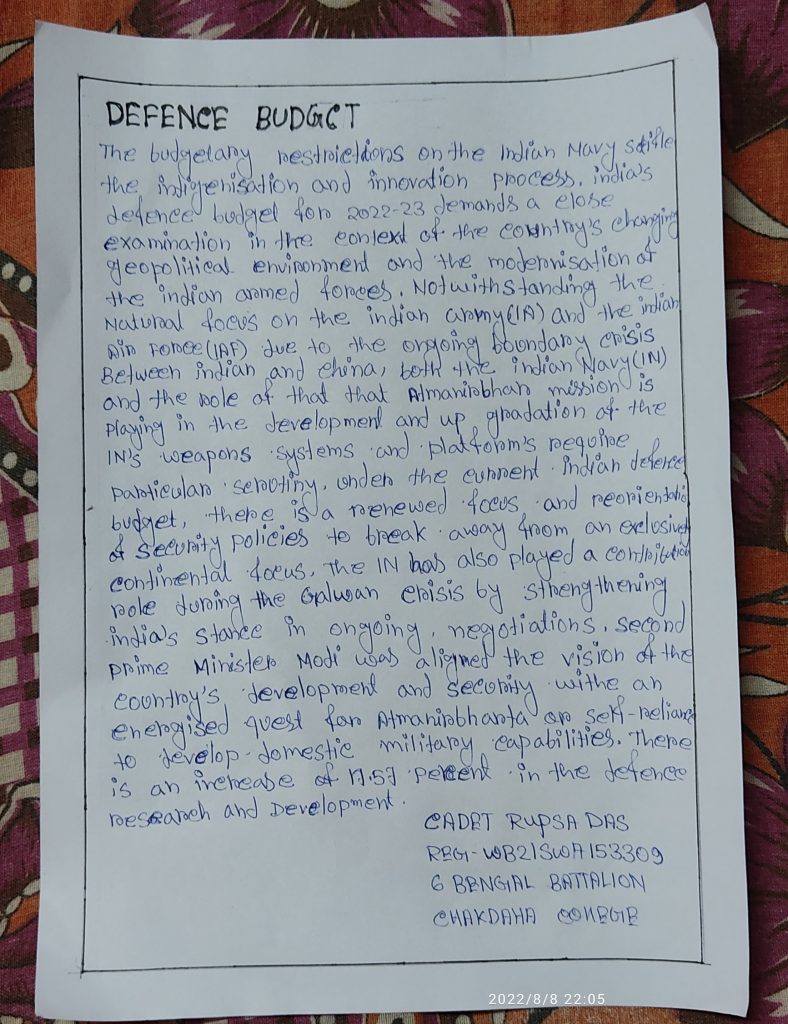 DEFENCE BUDGET
The budgetary restrictions on the Indian Navy stifle
the indigenisation and innovation process. india's
defence budget for 2022-23 demands a close
examination in the context of the country's changing
geopolitical environment and the modernisation of
the indian armed forces. Notwithstanding the
Natural focus on the indian army(IA) and the indian
Air Force(IAF) due to the ongoing boundary crisis
Between indian and china, both the indian Navy(IN)
and the role of that that Atmanirbhar mission is
playing in the development and up gradation of the
IN's weapons systems and platform's require
particular scrutiny. under the current indian defence
budget, there is a renewed focus and reorientatio
of security policies to break away from an exclusive
continental focus. The IN has also played a contribution
role during the Galwan crisis by strengthening
india's stance in ongoing negotiations. second
prime Minister Modi was aligned the vision of the
country's development and security withe an
energised quest for Atmanirbharta or self-reliance
to develop domestic military capabilities. There
is an increase of 17.57 percent in the defence
research and Development.
CADET RUPSA DAS
REG-WB21SWA153309
6 BENGAL BATTALION
CHAKDAHA COllEGE
2022/8/8 22:05